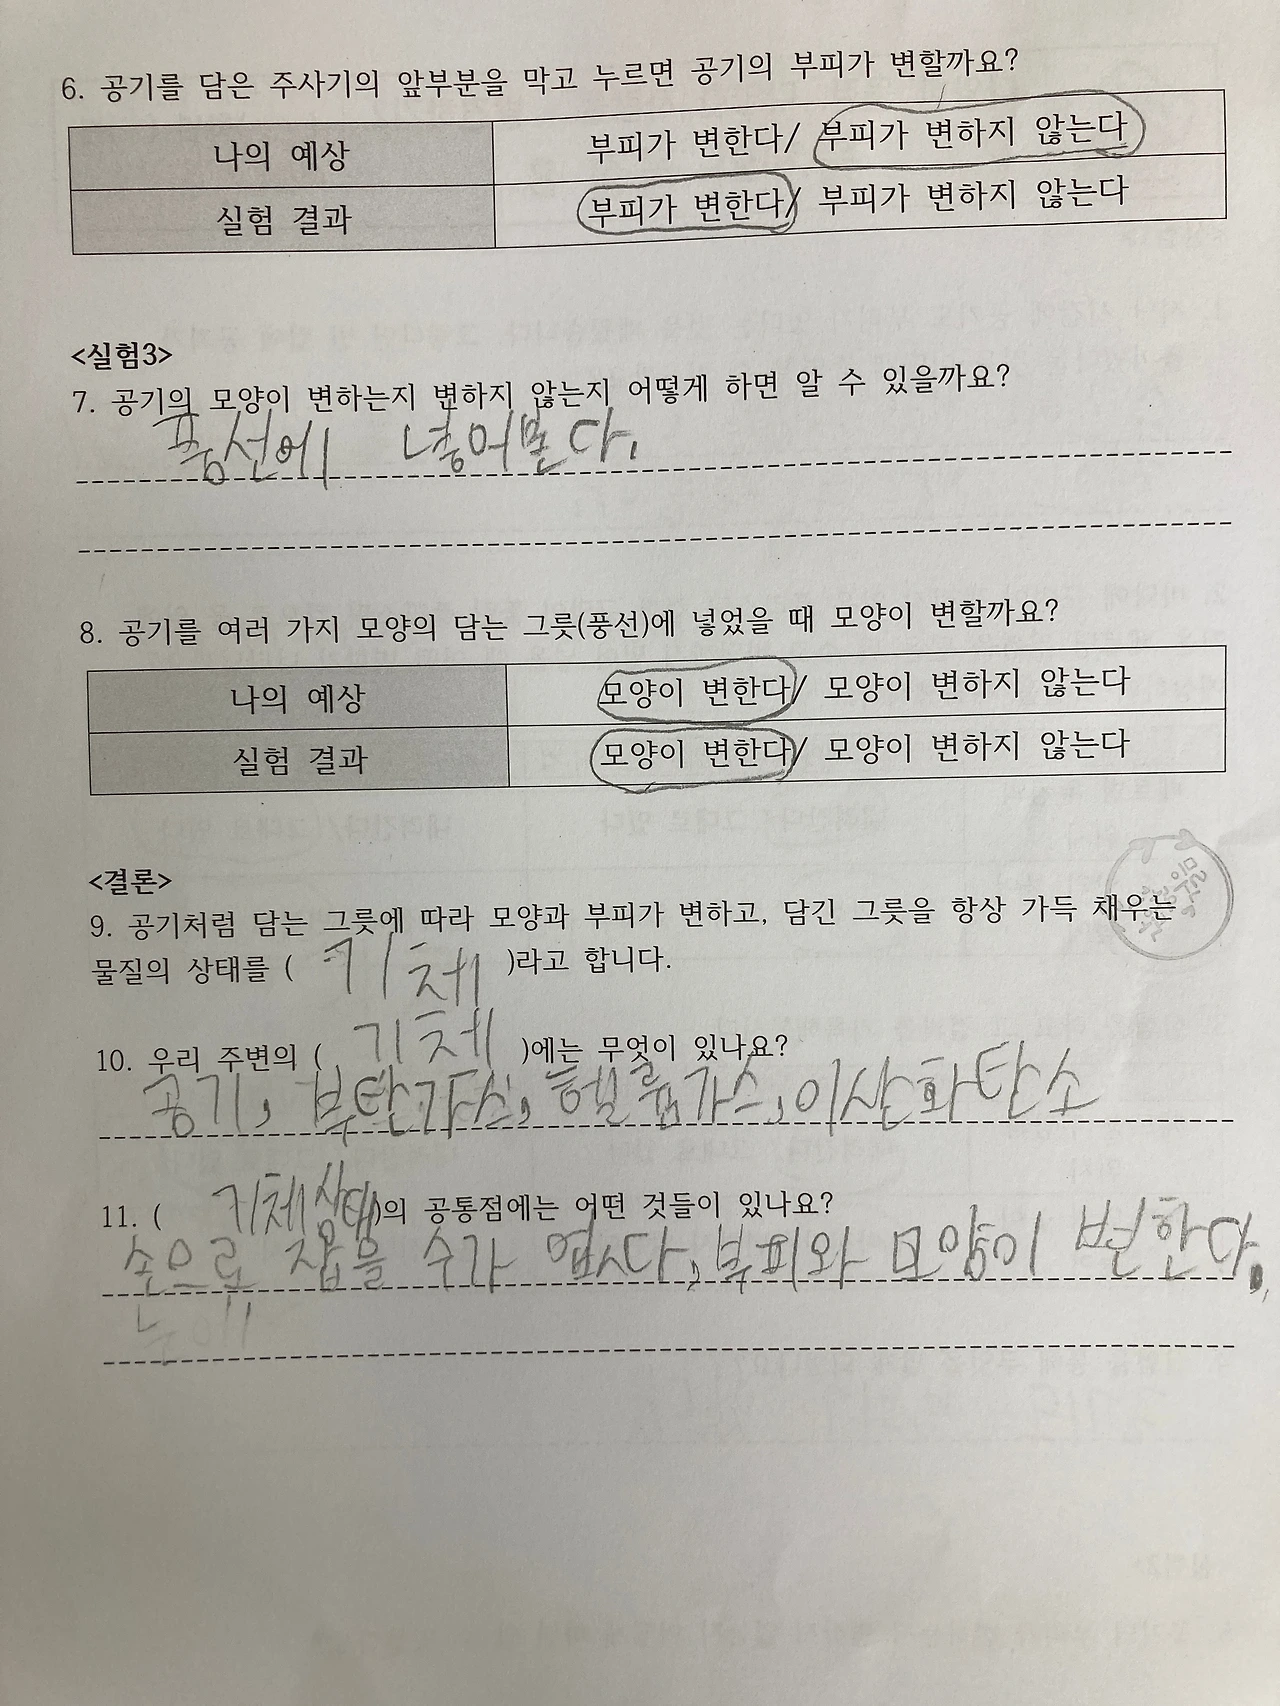 6. 공기를 담은 주사기의 앞부분을 막고 누르면 공기의 부피가 변할까요?
나의 예상 부피가 변한다/ 부피가 변하지 않는다
실험 결과 부피가 변한다/ 부피가 변하지 않는다
<실험3>
7. 공기의 모양이 변하는지 변하지 않는지 어떻게 하면 알 수 있을까요?
풍선에 넣어본다.
8. 공기를 여러 가지 모양의 담는 그릇(풍선)에 넣었을 때 모양이 변할까요?
나의 예상 모양이 변한다/ 모양이 변하지 않는다
실험 결과 모양이 변한다/ 모양이 변하지 않는다
<결론>
9. 공기처럼 담는 그릇에 따라 모양과 부피가 변하고, 담긴 그릇을 항상 가득 채우는
물질의 상태를 ( 기체 )라고 합니다.
10. 우리 주변의 ( 기체 )에는 무엇이 있나요?
공기, 부탄가스, 헬륨가스, 이산화탄소
11. ( 기체상태)의 공통점에는 어떤 것들이 있나요?
손으로 잡을 수가 없다, 부피와 모양이 변한다.
눈에